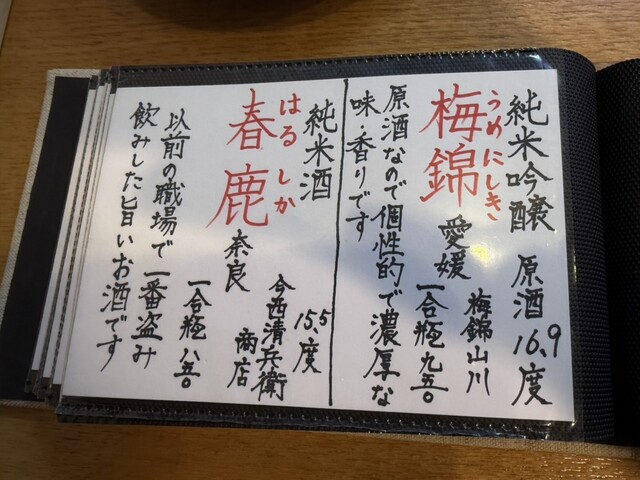 純米吟醸 原酒 16.9度
うめにしき
梅錦 愛媛 梅錦山川
一合瓶 九五〇
原酒なので個性的で濃厚な
味・香りです
純米酒 15.5度
はるしか
春鹿 奈良 今西清兵衛
商店
一合瓶 八五〇
以前の職場で一番盗み
飲みした旨いお酒です